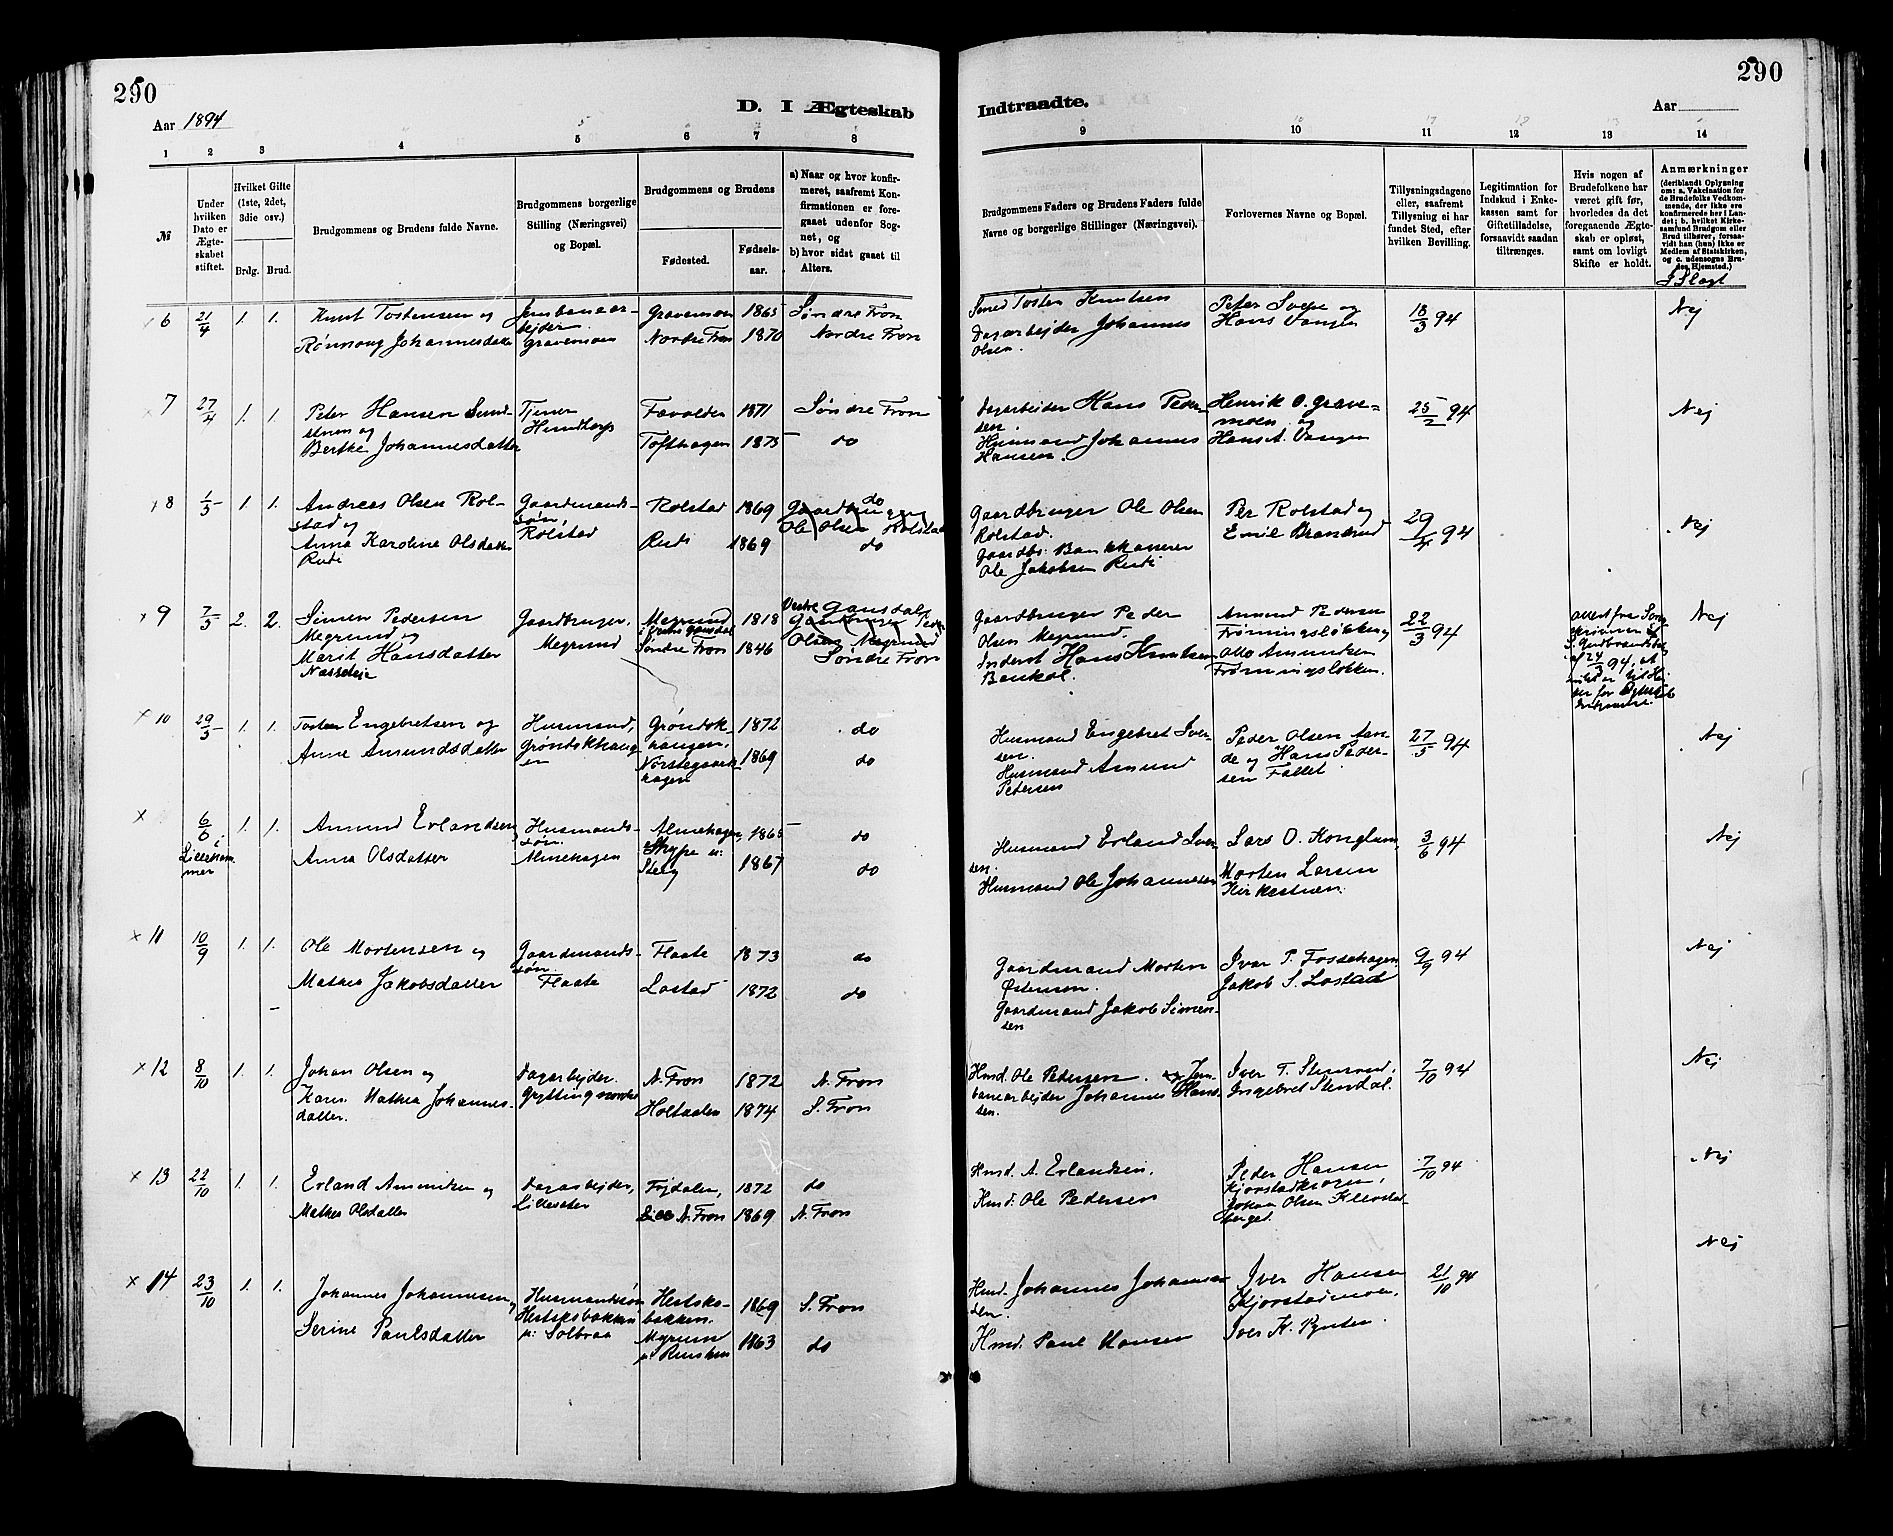 290
290
D. I Ægteskab Indtraadte.
Aar 1894
Aar
1 2 3 4 5 6 7 8 9 10 11 12 13 14
№
Under hvilken Dato er Ægteskabet stiftet.
Hvilket Gifte (1ste, 2det, 3die osv.)
Brdg. Brud.
Brudgommens og Brudens fulde Navne.
Brudgommens borgerlige Stilling (Næringsvei) og Bopæl.
Brudgommens og Brudens
Fødested.
Fødselsaar.
a) Naar og hvor konfirmeret, saafremt Konfirmationen er foregaaet udenfor Sognet, og
b) hvor sidst gaaet til Alters.
Brudgommens Faders og Brudens Faders fulde Navne og borgerlige Stillinger (Næringsvei).
Forlovernes Navne og Bopæl.
Tillysningsdagene eller, saafremt Tillysning ei har fundet Sted, efter hvilken Bevilling.
Legitimation for Indskud i Enkekassen samt for Giftetilladelse, forsaavidt saadan tiltrænges.
Hvis nogen af Brudefolkene har været gift før, hvorledes da det foregaaende Ægteskab er opløst, samt om lovligt Skifte er holdt.
Anmærkninger
(deriblandt Oplysning om: a. Vakcination for de Brudefolks Vedkommende, der ikke ere konfirmerede her i Landet; b. hvilket Kirkesamfund Brudgom eller Brud tilhører, forsaavidt han (hun) ikke er Medlem af Statskirken, og c. udensogns Brudes Hjemsted.)
I Slægt
6 21/4 1. 1. Knut Tostensen og
Jernbanearbejder Gravemoen
Gravemoen 1865 Søndre Fron
Smed Tosten Knutsen
Peter Svepe og
Hans Vangen
18/3 94
Nej
Rønnaug Johannesdatter
Nordre Fron 1870 Nordre Fron
Dagarbejder Johannes
Olsen.
7 27/4 1. 1. Peter Hansen Sund-
strum og
Tjener
Hundtorp
1871 Søndre Fron
Dagarbejder Hans Peder-
sen.
Henrik O. Grave-
moen og
25/2 94
Nej
Berthe Johannesdatter
Tofthagen 1875 do
Husmand Johannes
Hansen.
Hans A. Vangen
8 1/5 1. 1. Andreas Olsen Rol-
stad og
Gaardmands-
søn,
Rolstad
Rolstad 1869
do
Gaardbruger Ole Olsen
Rolstad.
Per Rolstad og
Emil Brandrud
29/4 94
Nej
Anna Karoline Olsdatter
Rudi
Rudi 1869 do
Gaardbr. Bankkaserer
Ole Jakobsen Rudi
9 7/5 2. 2. Simen Pedersen
Megrund og
Gaardbruger,
Megrund
Megrund 1818
Vestre Gausdal
Gaardbruger Peder
Olsen Megrund.
Amund Pedersen
Frøningsløkken og
22/3 94
Nej
Marit Hansdatter
Søndre Fron 1846
Søndre Fron
Inderst Hans Knutsen
Baukol.
Otto Amundsen
Frøningsløkken.
10 29/5 1. 1. Tosten Engebretsen og
Husmand,
Grøndokhaug-
en
Grøndok-
haugen.
1872 do
Husmand Engebret Iver-
sen.
Peder Olsen Aan-
de og Hans Peder-
sen Fallet
27/5 94
Nej
Anne Amundsdatter
Norstegaards-
hagen
1869 do
Husmand Amund
Petersen
6/6 i
Lilleham-
mer
1. 1. Amund Erlandsen
Husmands-
søn.
Almehagen
Almehagen, 1865 do
Husmand Erland Iver-
sen.
Lars O. Konglum,
3/6 94
Nej
Anna Olsdatter
Steig 1867 do
Husmand Ole Johannessen
Morten Larsen
Kirkestuen.
11 10/9 1. 1. Ole Mortensen og
Gaardmands-
søn.
Flaate
Flaate 1873 do
Gaardmand Morten
Østensen.
Ivar P. Fossehagen
9/9 94
Nej
Mathea Jakobsdatter
Lostad 1872 do
Gaardmand Jakob Simen-
sen
Jakob S. Lostad
12 8/10 1. 1. Johan Olsen og
Dagarbejder.
Grytting nordre
N. Fron 1872 N. Fron
Hmd. Ole Petersen. Jern-
banearbejder Johannes Han-
sen.
Iver T. Slimand.
7/10 94
Nej
Karen Mathea Johannes-
datter.
Holtaalen 1874 S. Fron
Engebret Stendal.
13 22/10 1. 1. Erland Amundsen og
Dagarbejder,
Lillesæter
Fojdalen, 1872 do
Hmd. A. Erlandsen.
Peder Hansen
Kjorstadkrogen,
7/10 94
Nej
Mathea Olsdatter
N. Fron 1869 N. Fron
Hmd. Ole Pedersen
Johan Olsen Klevstad-
berget.
14 23/10 1. 1. Johannes Johannesen og
Husmandssøn
u. Solbraa
bakken. 1869 S. Fron
Hmd. Johannes Johannes-
sen.
Iver Hansen
Kjorstadmoen,
21/10 94
Nej
Serine Paulsdatter
Myrum 1863 do
Hmd. Paul Hansen
Iver K. Rusten.